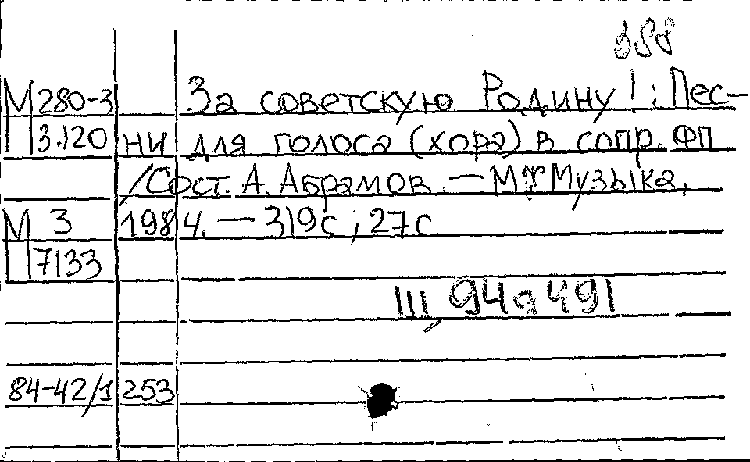 358
М 280-3 За советскую Родину! : Пес-
3.120 ни для голоса (хора) в сопр. ФП
/Сост. А. Абрамов. — М.: Музыка,
М 3 1984. — 319с ; 27с
7133
Щ 94 а 491
84-42/1 253